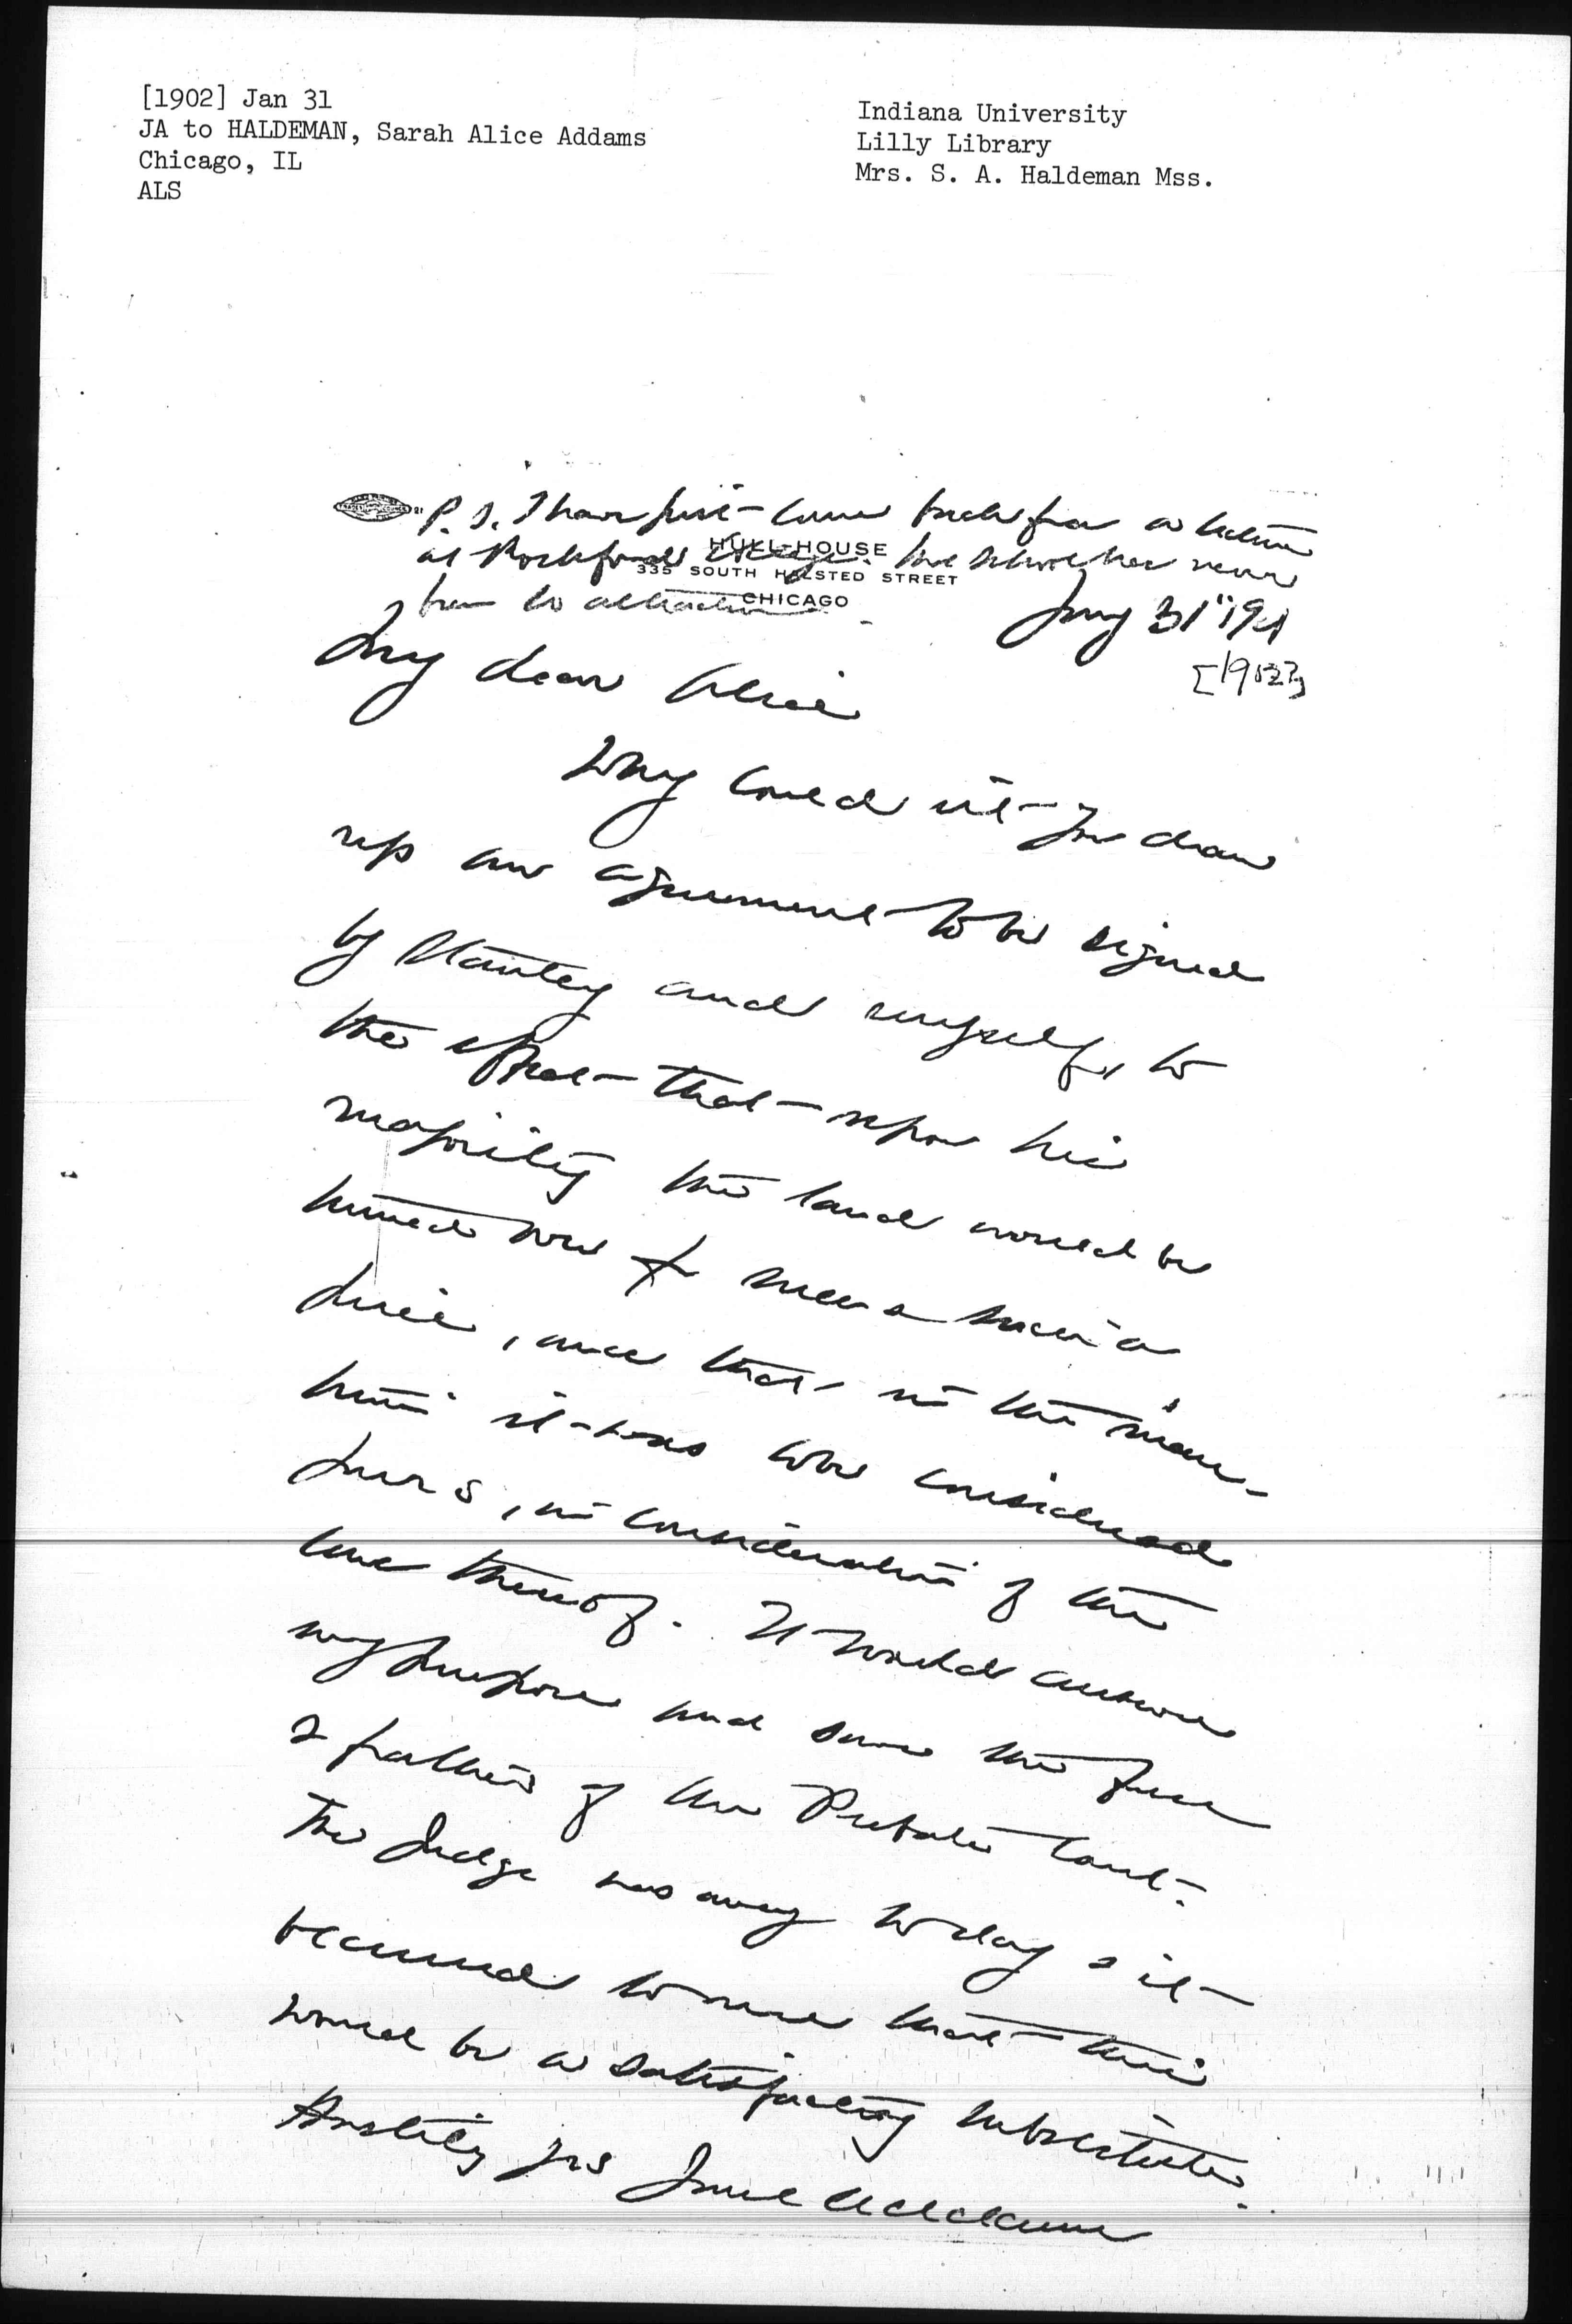 [1902] Jan 31
JA to HALDEMAN, Sarah Alice Addams
Chicago, IL
ALS
Indiana University
Lilly Library
Mrs. S. A. Haldeman Mss.
P.S. I have just come back from a lecture
at Rockford College. The school has never
been so attractive.
HULL-HOUSE
335 SOUTH HALSTED STREET
CHICAGO
Jany 31" 190
[1902?]
My dear Alice
Why could it you draw
up an agreement to be signed
by Stanley and myself, to
the effect that upon his
majority the land would be
turned over for
and that in the mean-
time it was to be considered
yours, in consideration of the
thereof. It would answer
my purpose and save the fuss
& bother of the Probate Court.
The Judge was away today & it
occurred to me that this
would be a satisfactory substitute.
Hastily yrs Jane Addams